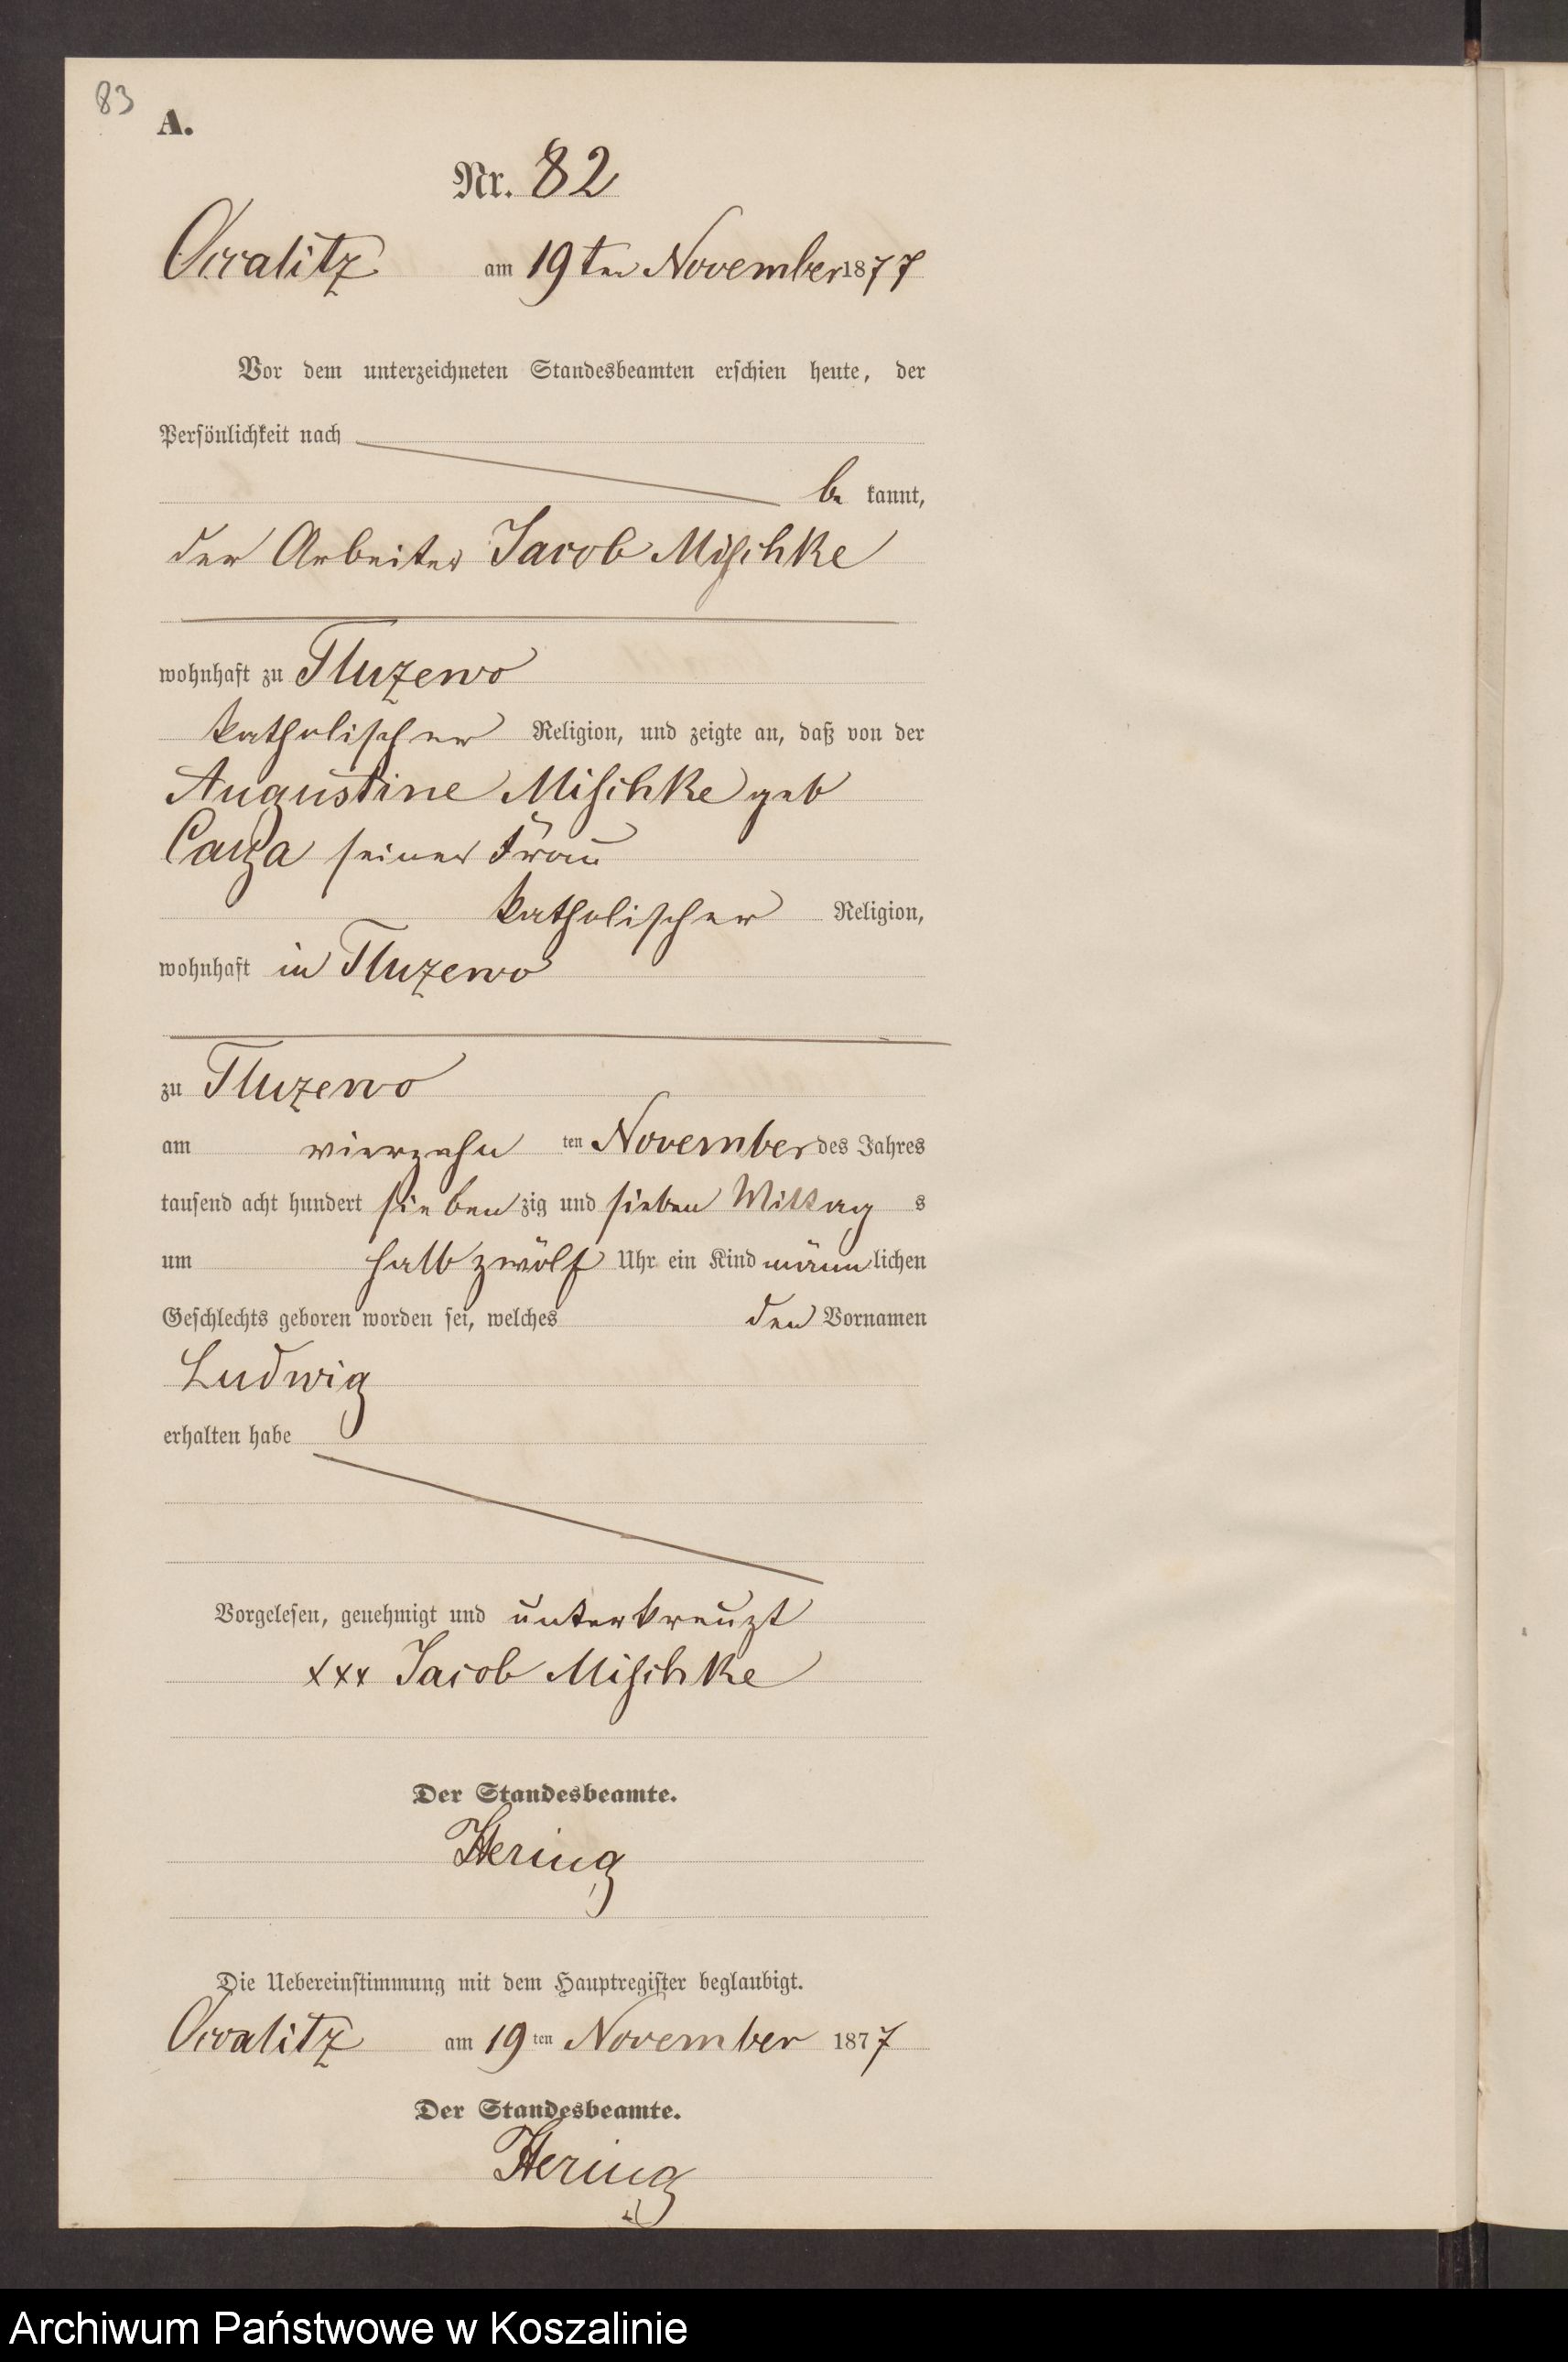 83
A.
Nr. 82
Occalitz am 19ten November 1877
Vor dem unterzeichneten Standesbeamten erschien heute, der
Persönlichkeit nach
be kannt,
der Arbeiter Jacob Mischke
wohnhaft zu Tluzewo
katholischer Religion, und zeigte an, daß von der
Augustine Mischke geb
seiner Frau
katholischer Religion,
wohnhaft in Tluzewo
zu Tluzewo
am vierzehn ten November des Jahres
tausend acht hundert sieben zig und sieben Mittag s
um halb zwölf Uhr ein Kind männ lichen
Geschlechts geboren worden sei, welches den Vornamen
Ludwig
erhalten habe
Vorgelesen, genehmigt und unterkreuzt
xxx Jacob Mischke
Der Standesbeamte.
Hering
Die Uebereinstimmung mit dem Hauptregister beglaubigt.
Occalitz am 19ten November 1877
Der Standesbeamte.
Hering
Archiwum Państwowe w Koszalinie